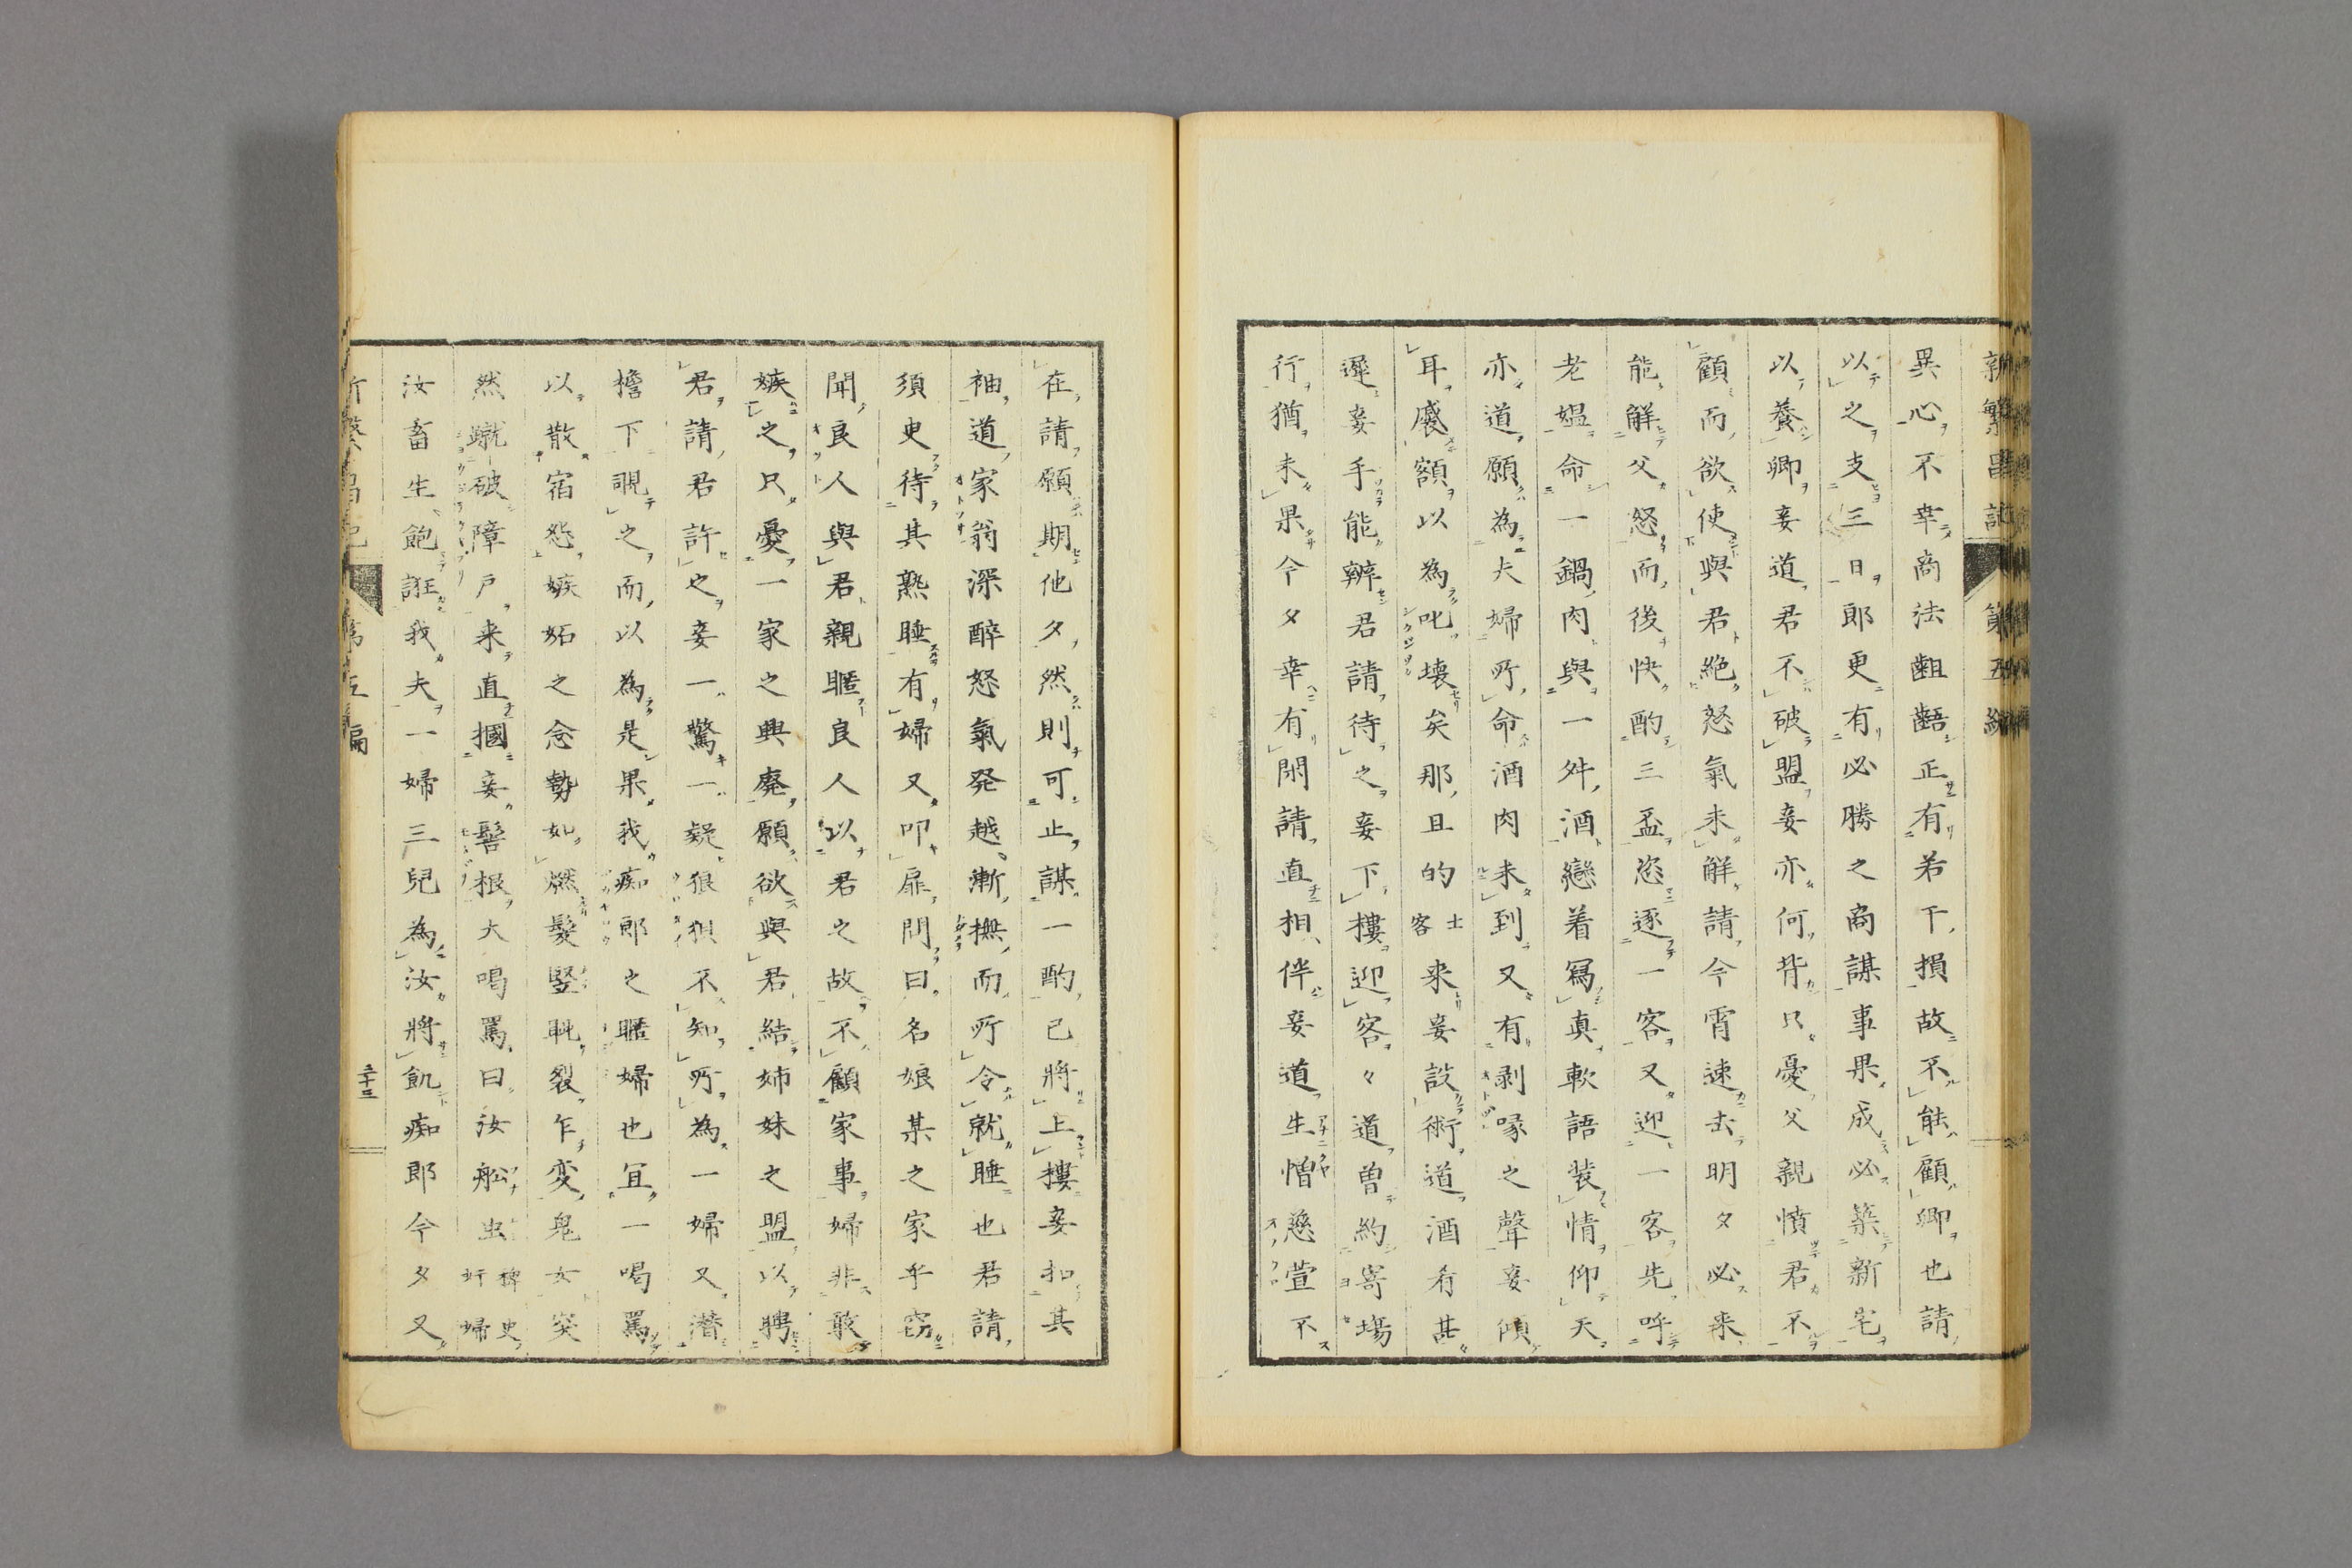 新繁昌記 第五編
異心不幸商法齟齬正有若干損故不能顧卿也請
以之支三日郎更有必勝之商謀事果成必築新宅
以養卿妾道君不破盟妾亦何背只憂父親憤君不
顧而欲使與君絶怒氣未解請今宵速去明夕必来
能解父怒而後快酌三盃恣逐一客又迎一客先呼
老媼命一鍋肉與一舛酒戀着寫真軟語装情仰天
亦道願為夫婦所命酒肉未到又有剥喙之聲妾傾
耳蹙額以為叱壊矣那且的士客来妾設術道酒肴甚
遲妾手能辨君請待之妾下樓迎客々道曽約寄場
行猶未果今夕幸有閑請直相伴妾道生憎慈萱不
在請願期他夕然則可止謀一酌已將上樓妾扣其
袖道家翁深醉怒氣発越漸撫而所令就睡也君請
須臾待其熟睡有婦又叩扉問曰名娘某之家乎窃
聞良人與君親暱良人以君之故不顧家事婦非敢
嫉之只憂一家之興廃願欲與君結姉妹之盟以聘
君請君許之妾一驚一疑狼狽不知所為一婦又潜
檐下覘之而以為是果我痴郎之暱婦也宜一喝罵
以散宿怨嫉妬之念勢如燃髮竪眦裂乍変鬼女突
然蹴破障戸来直摑妾髻根大喝罵曰汝舩虫稗史奸婦
汝畜生飽誑我夫一婦三兒為汝將飢痴郎今夕又
新繁昌記 第五編 三十三